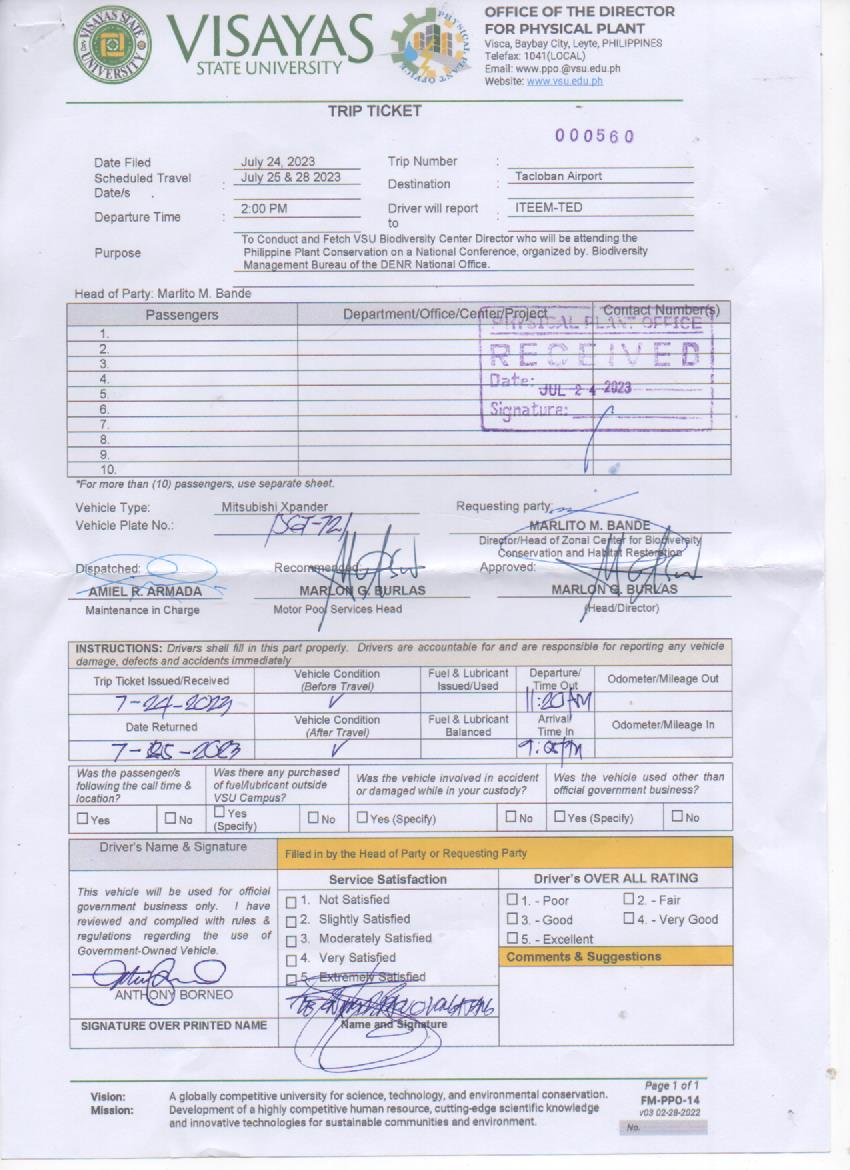 VISAYAS STATE UNIVERSITY
VISAYAS
STATE UNIVERSITY
PHYSICAL PLANT OFFICE
OFFICE OF THE DIRECTOR
FOR PHYSICAL PLANT
Visca, Baybay City, Leyte, PHILIPPINES
Telefax: 1041(LOCAL)
Email: www.ppo.@vsu.edu.ph
Website: www.vsu.edu.ph
TRIP TICKET
000560
Date Filed July 24, 2023 Trip Number :
Scheduled Travel Date/s : July 25 & 28 2023 Destination : Tacloban Airport
Departure Time : 2:00 PM Driver will report to : ITEEM-TED
Purpose
To Conduct and Fetch VSU Biodiversity Center Director who will be attending the
Philippine Plant Conservation on a National Conference, organized by. Biodiversity
Management Bureau of the DENR National Office.
Head of Party: Marlito M. Bande
Passengers Department/Office/Center/Project Contact Number(s)
1.
2.
3.
4.
5.
6.
7.
8.
9.
10.
PHYSICAL PLANT OFFICE
RECEIVED
Date: JUL 24 2023
Signature:
*For more than (10) passengers, use separate sheet.
Vehicle Type: Mitsubishi Xpander Requesting party:
Vehicle Plate No.:
MARLITO M. BANDE
Director/Head of Zonal Center for Biodiversity
Conservation and Habitat Restoration
Dispatched: Recommended: Approved:
AMIEL R. ARMADA MARLON G. BURLAS MARLON G. BURLAS
Maintenance in Charge Motor Pool Services Head (Head/Director)
INSTRUCTIONS: Drivers shall fill in this part properly. Drivers are accountable for and are responsible for reporting any vehicle
damage, defects and accidents immediately
Trip Ticket Issued/Received Vehicle Condition (Before Travel) Fuel & Lubricant Issued/Used Departure/ Time Out Odometer/Mileage Out
7-24-2023 ✓ 11:20AM
Date Returned Vehicle Condition (After Travel) Fuel & Lubricant Balanced Arrival/ Time In Odometer/Mileage In
7-25-2023 ✓
Was the passenger/s following the call time & location?
☐ Yes ☐ No
Was there any purchased of fuel/lubricant outside VSU Campus?
☐ Yes (Specify) ☐ No
Was the vehicle involved in accident or damaged while in your custody?
☐ Yes (Specify) ☐ No
Was the vehicle used other than official government business?
☐ Yes (Specify) ☐ No
Driver's Name & Signature
Filled in by the Head of Party or Requesting Party
This vehicle will be used for official
government business only. I have
reviewed and complied with rules &
regulations regarding the use of
Government-Owned Vehicle.
ANTHONY BORNEO
SIGNATURE OVER PRINTED NAME
Service Satisfaction
☐ 1. Not Satisfied
☐ 2. Slightly Satisfied
☐ 3. Moderately Satisfied
☐ 4. Very Satisfied
☐ 5. Extremely Satisfied
Name and Signature
Driver's OVER ALL RATING
☐ 1. - Poor ☐ 2. - Fair
☐ 3. - Good ☐ 4. - Very Good
☐ 5. - Excellent
Comments & Suggestions
Vision: A globally competitive university for science, technology, and environmental conservation.
Mission: Development of a highly competitive human resource, cutting-edge scientific knowledge
and innovative technologies for sustainable communities and environment.
Page 1 of 1
FM-PPO-14
v03 02-28-2022
No.